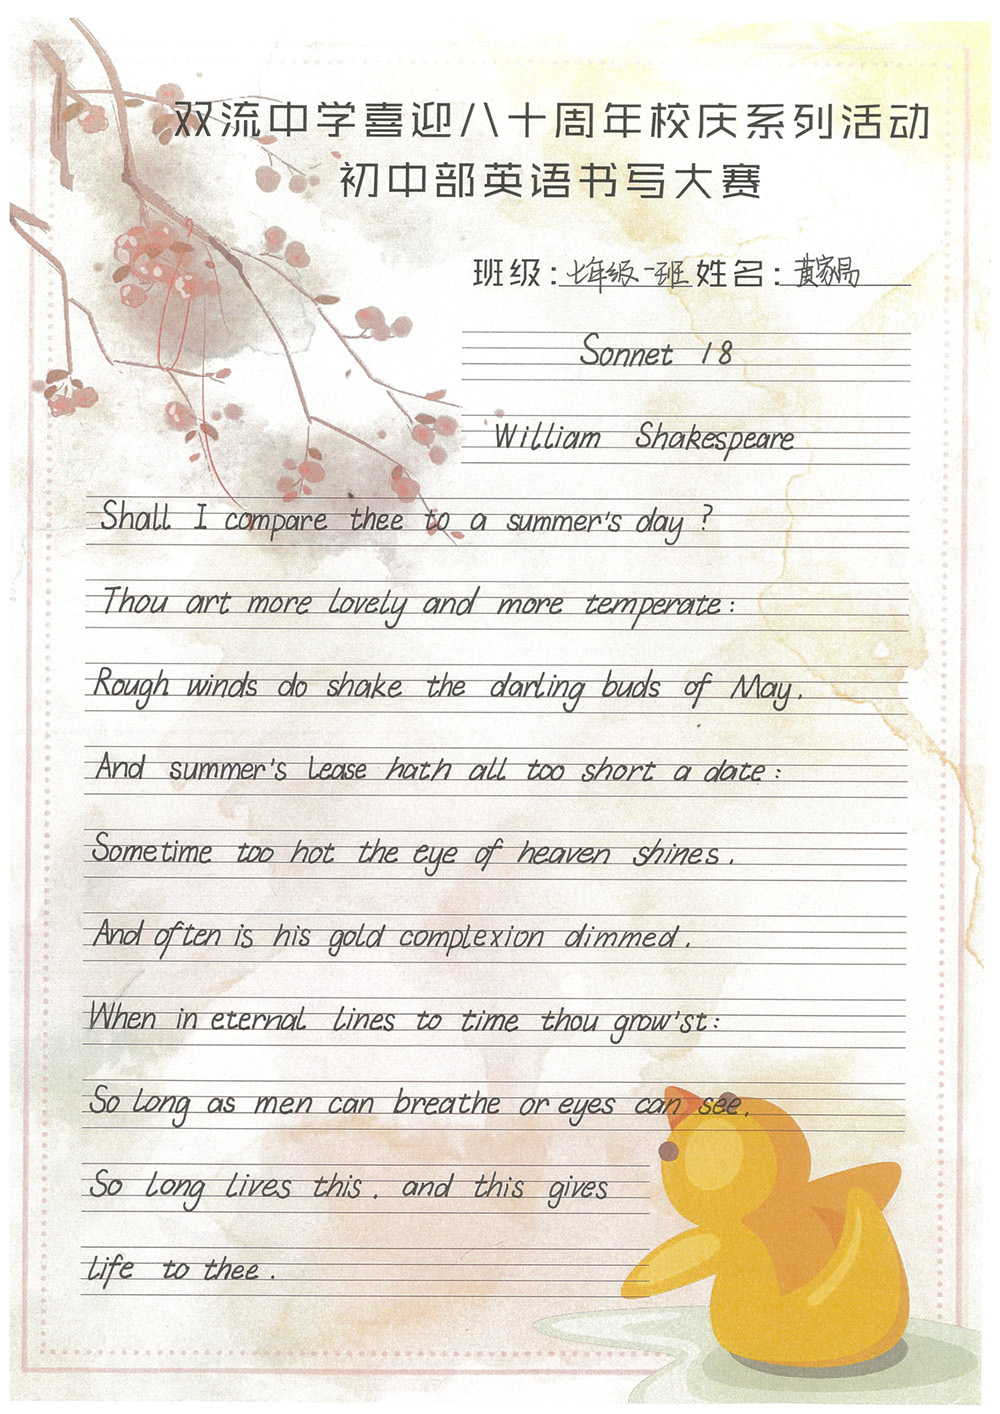 双流中学喜迎八十周年校庆系列活动
初中部英语书写大赛
班级:七年级一班 姓名:黄家
Sonnet 18
William Shakespeare
Shall I compare thee to a summer's day ?
Thou art more lovely and more temperate :
Rough winds do shake the darling buds of May.
And summer's lease hath all too short a date :
Sometime too hot the eye of heaven shines .
And often is his gold complexion dimmed .
When in eternal lines to time thou grow'st :
So long as men can breathe or eyes can see.
So long lives this . and this gives
life to thee .